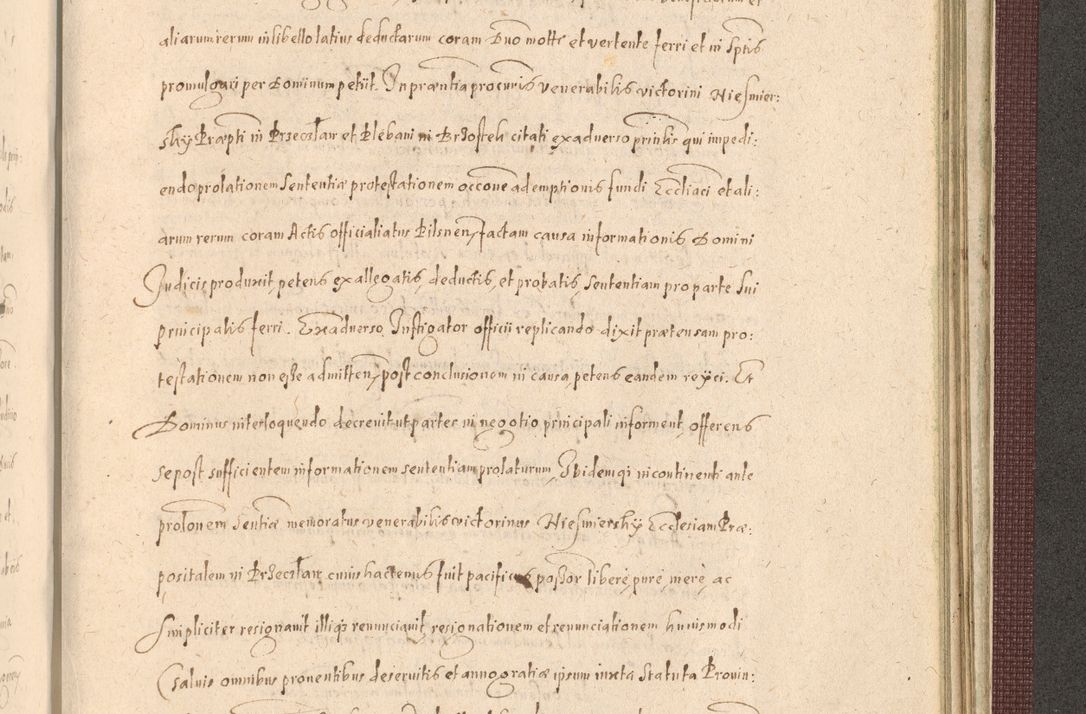 aliarum rerum in libello latius deductarum coram Duo motte et vertente ferri et in Sptis
promulgari per Dominum petiit. In præntia procuris venerabilis victorini Niesmier:
sky Præpti in Przeczlaw et Plebani in Brzostek citati ex adverso prinlis qui impedi:
endo prolationem Sententiæ protestationem occone ademptionis fundi Eccliaci et ali:
arum rerum coram Actis officialiatus Pilsnen, factam causa informationis Domini
Judicis produxit, petens ex allegatis, deductis, et probatis, Sententiam pro parte Sui
principalis ferri. Exadverso Instigator officii replicando dixit prætensam pro:
testationem non esse admitten, post conclusionem in causa, petens eandem reijci. Et
Dominus interloquendo decrevit ut partes in negotio principali informent, offerens
se post sufficientem informationem sententiam prolaturum, Ibidemq3 incontinenti ante
prolonem Sentiæ memoratus venerabilis victorinus Niesmiersky Ecclesiam Præ:
positalem in Przeczlaw cuius hactenus fuit pacificus possor libere, pure, mere, ac
Simpliciter resignavit illiq3 renunciavit, resignationem et renunciationem huiusmodi
(Salvis omnibus proventibus deservitis et anno gratiæ ipsum iuxta Statuta Provin: